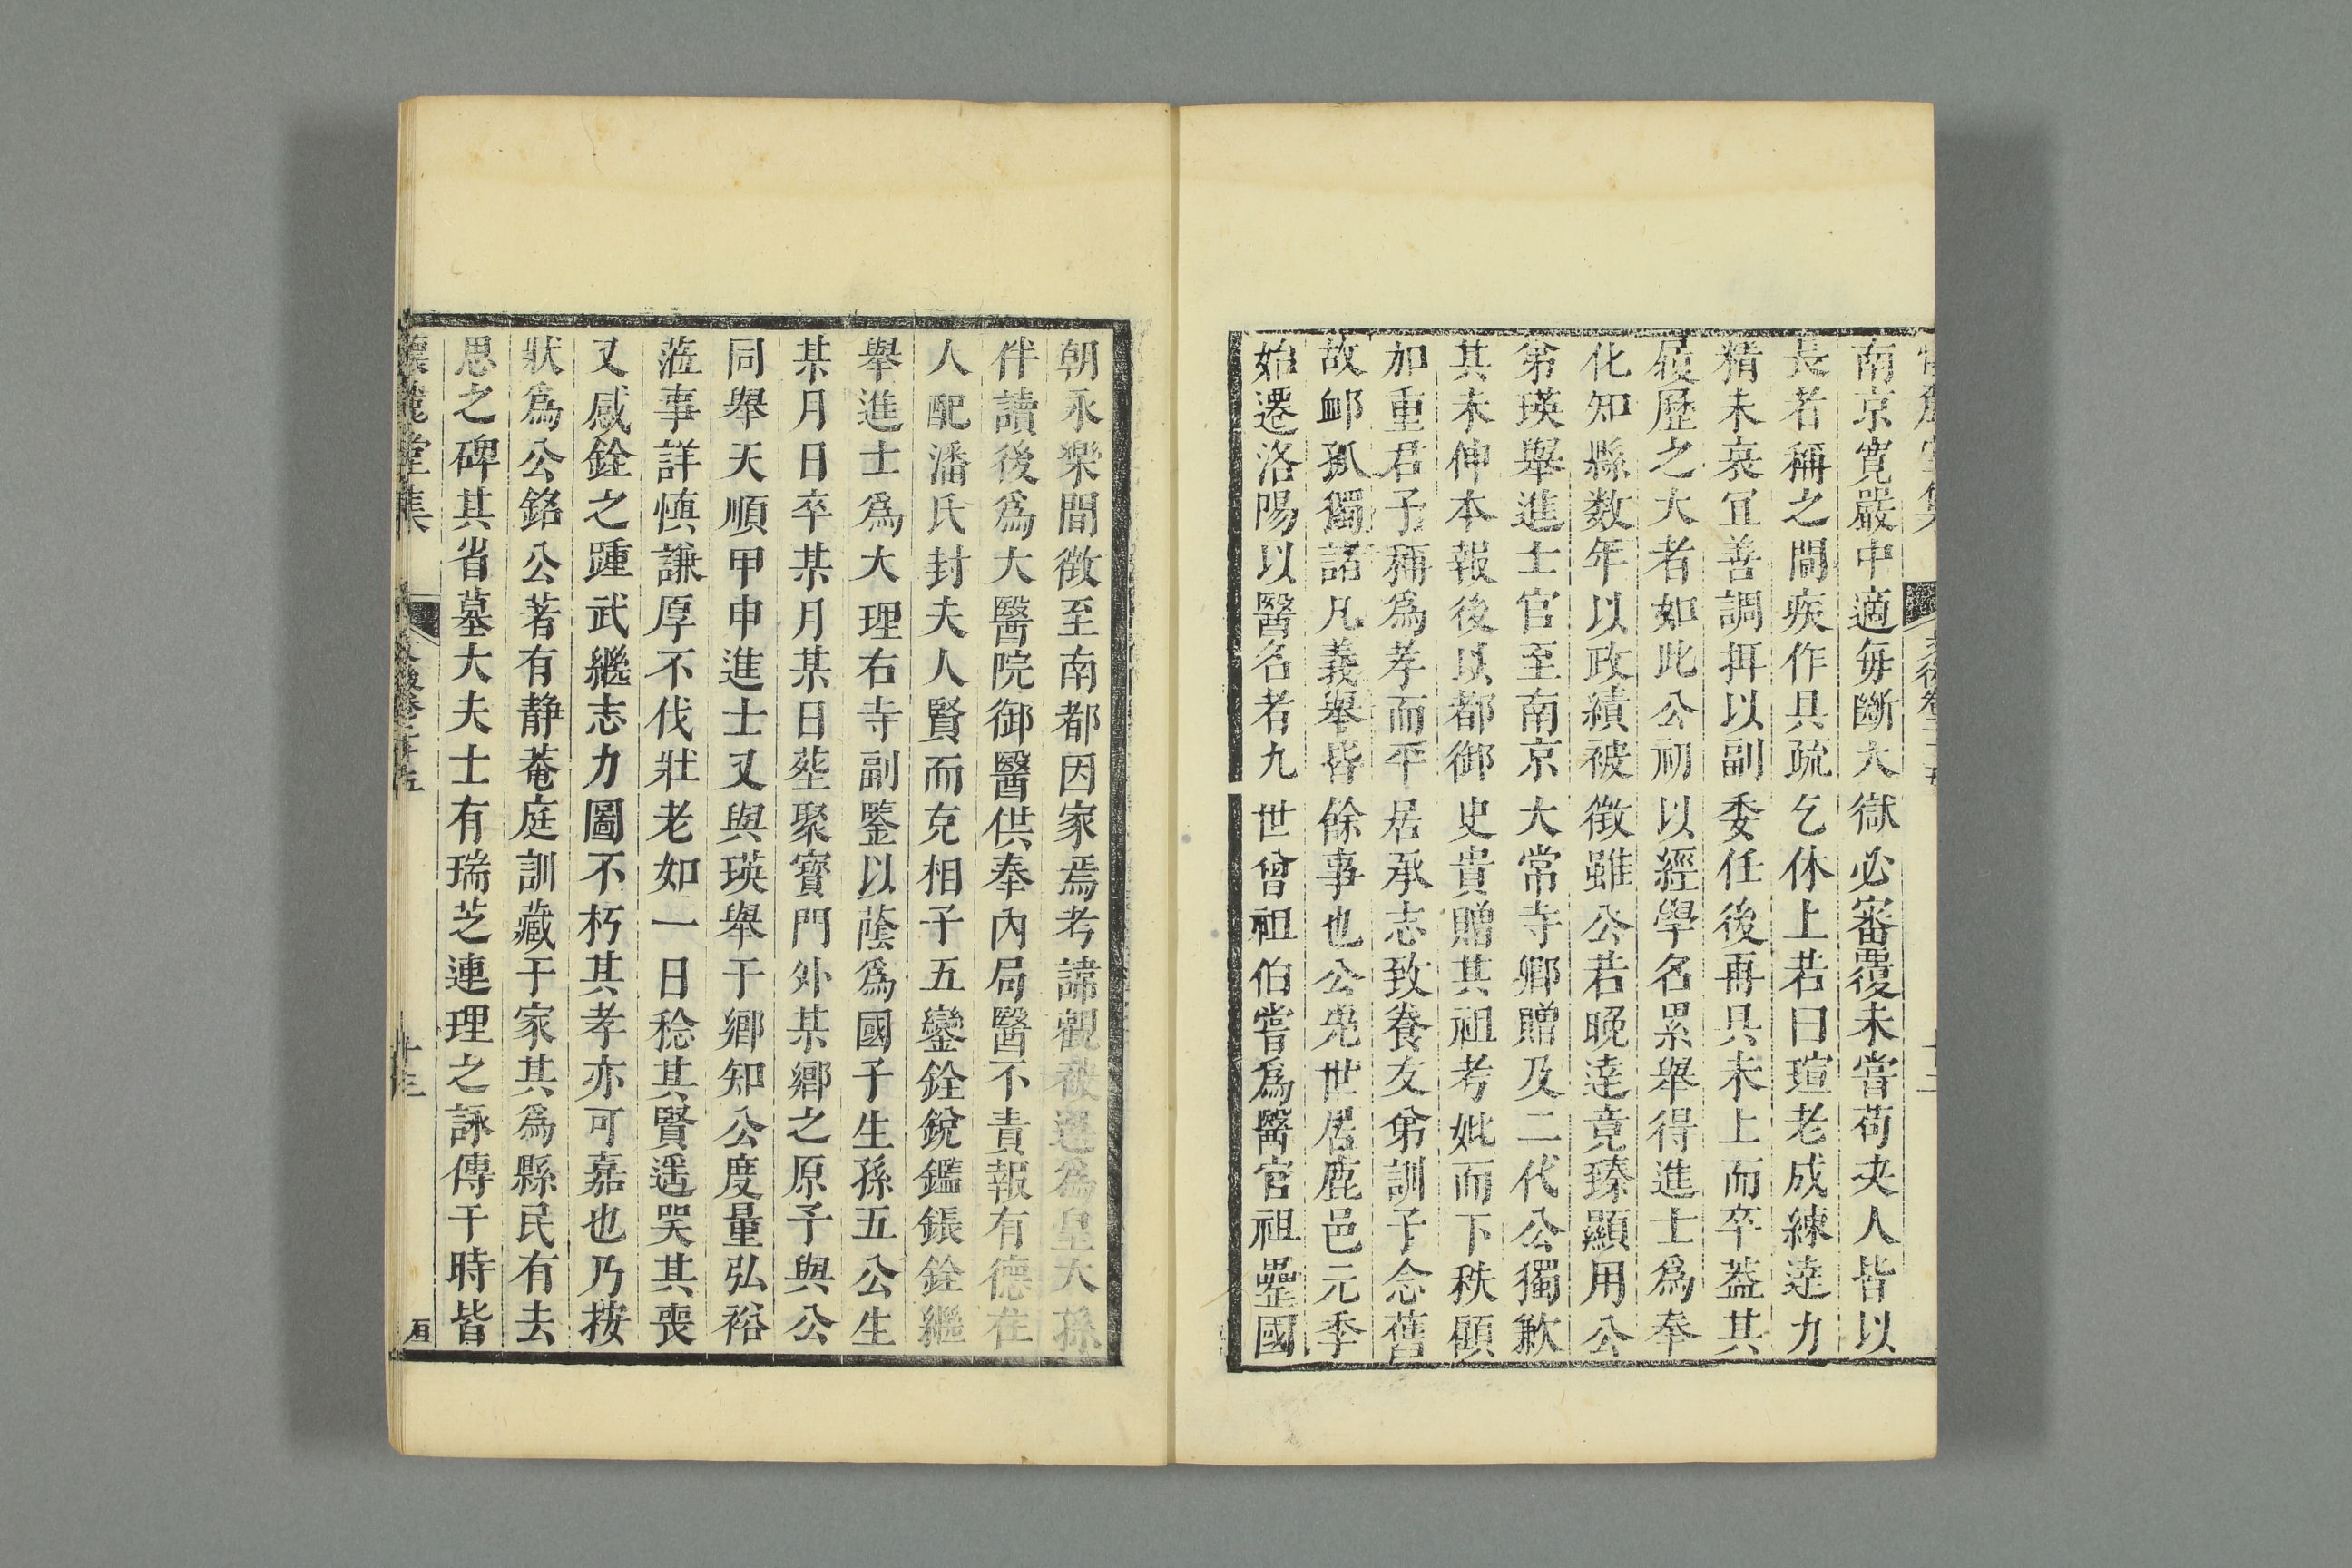 南京寛嚴中適毎斷大獄必審覆未嘗苟夫人皆以
長者稱之間疾作具疏乞休上若曰瑄老成練達力
精未衰宜善調摂以副委任後再具未上而卒葢其
履歷之大者如此公初以經學名累舉得進士爲奉
化知縣数年以政績被徴雖公若晚達竟臻顯用公
第瑛舉進士官至南京大常寺卿贈及二代公獨歉
其未伸本報後以都御史貴贈其祖考妣而下秩顧
加重君子稱爲孝而平居承志致養友弟訓子念舊
故䘏孤獨諸凡義舉皆餘事也公先世居鹿邑元季
始遷洛陽以醫名者九世曾祖伯嘗爲醫官祖壘國
朝永樂間徴至南都因家焉考諱觀被選爲皇太孫
伴讀後爲大醫院御醫供奉內局醫不責報有德在
人配潘氏封夫人賢而克相子五鑾銓銳鑑鋹銓繼
舉進士爲大理右寺副鑒以蔭爲國子生孫五公生
某月日卒某月某日塟聚寳門外某鄉之原予與公
同舉天順甲申進士又與瑛舉于鄉知公度量弘裕
蒞事詳慎謙厚不伐壯老如一日稔其賢遥哭其喪
又感銓之踵武繼志力圖不朽其孝亦可嘉也乃按
狀爲公銘公著有静菴庭訓藏于家其爲縣民有去
思之碑其省墓大夫士有瑞芝連理之詠傳于時皆
麓堂集 文後卷二十五 十三